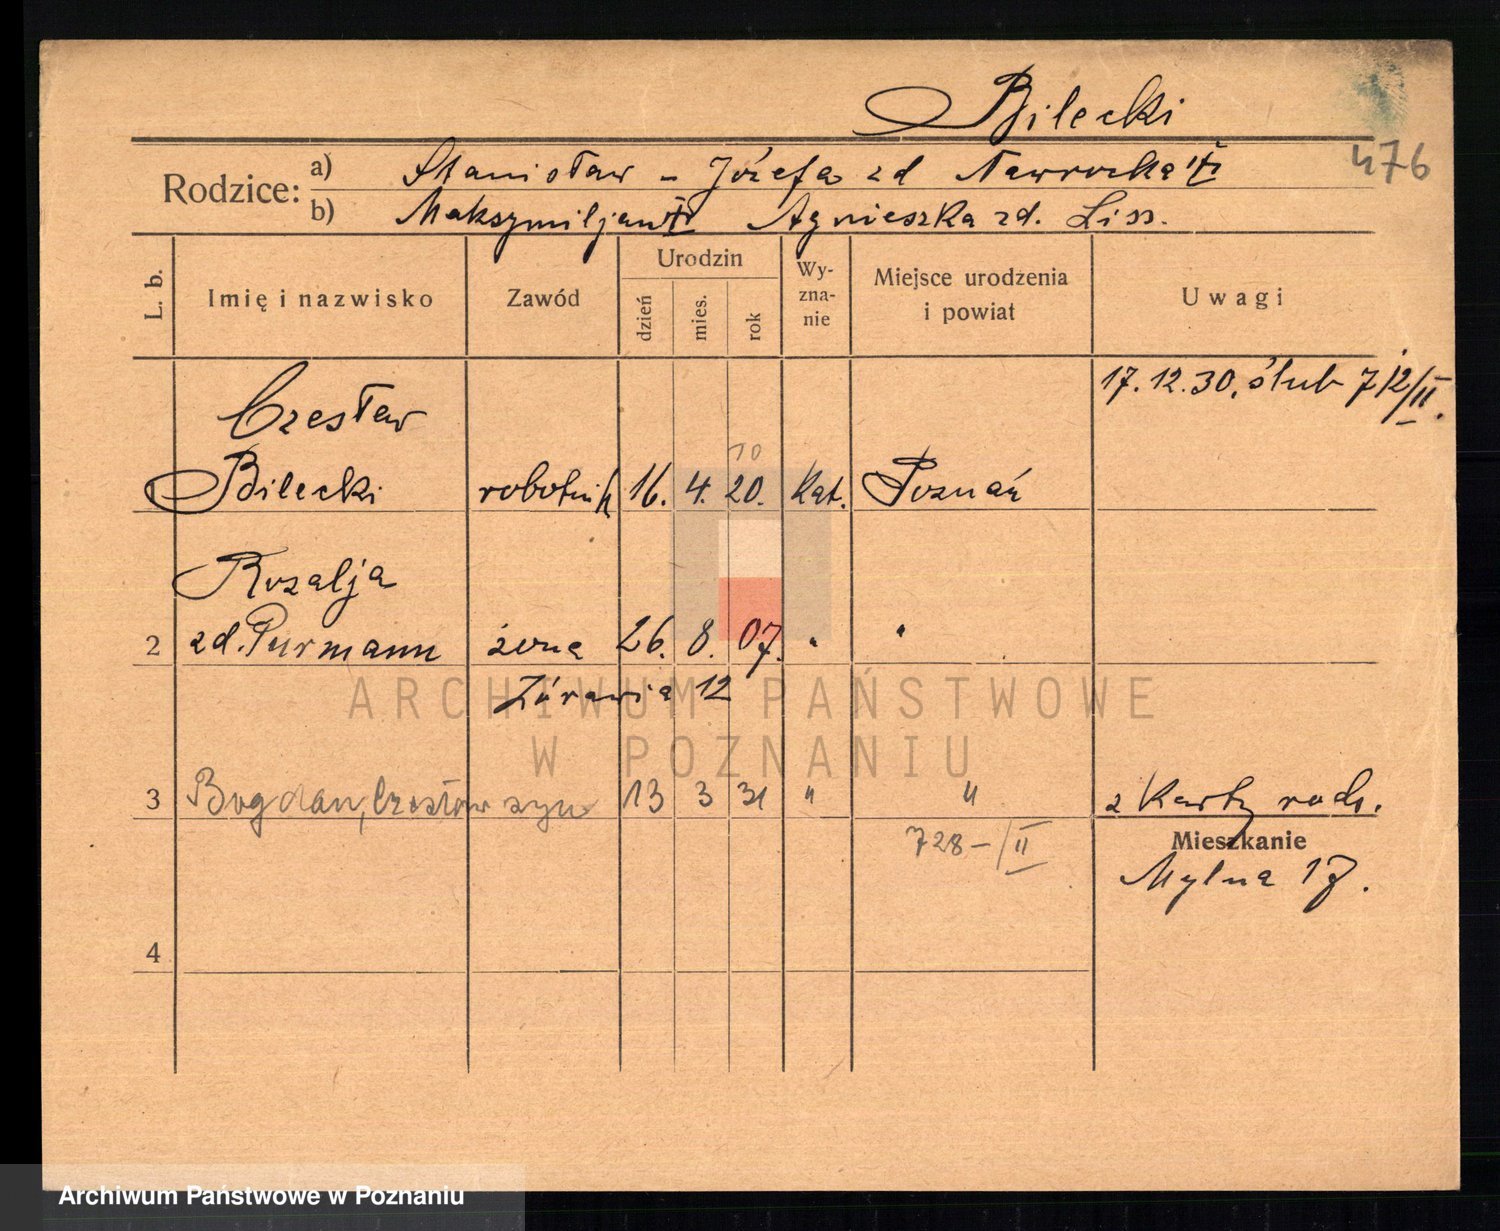 Bilecki
476
Rodzice: a) Stanisław - Józefa zd Nawrocka
b) Maksymiljan Agnieszka zd. Liss.
L. b. Imię i nazwisko Zawód Urodzin dzień mies. rok Wy-zna-nie Miejsce urodzenia i powiat Uwagi
17. 12. 30. ślub 712/II.
Czesław
10
1 Bilecki robotnik 16. 4. 20. kat. Poznań
Rozalja
2 zd. Purmann żona 26. 8. 07. " "
Żórawia 12
ARCHIWUM PAŃSTWOWE
W POZNANIU
3 Bogdan, Czesław syn 13 3 31 " " z Karty rodz.
728-/II
Mieszkanie
Mylna 17.
4
Archiwum Państwowe w Poznaniu